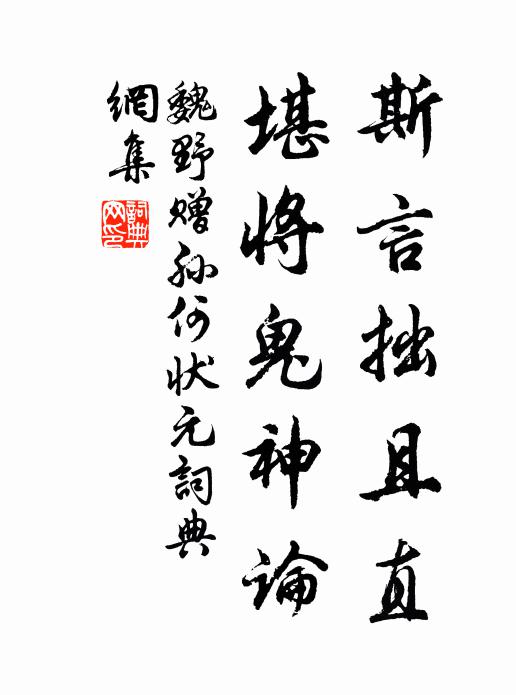 斯言拙且直
堪將鬼神論
魏野贈孫何狀元詞典
網集
詞典網印